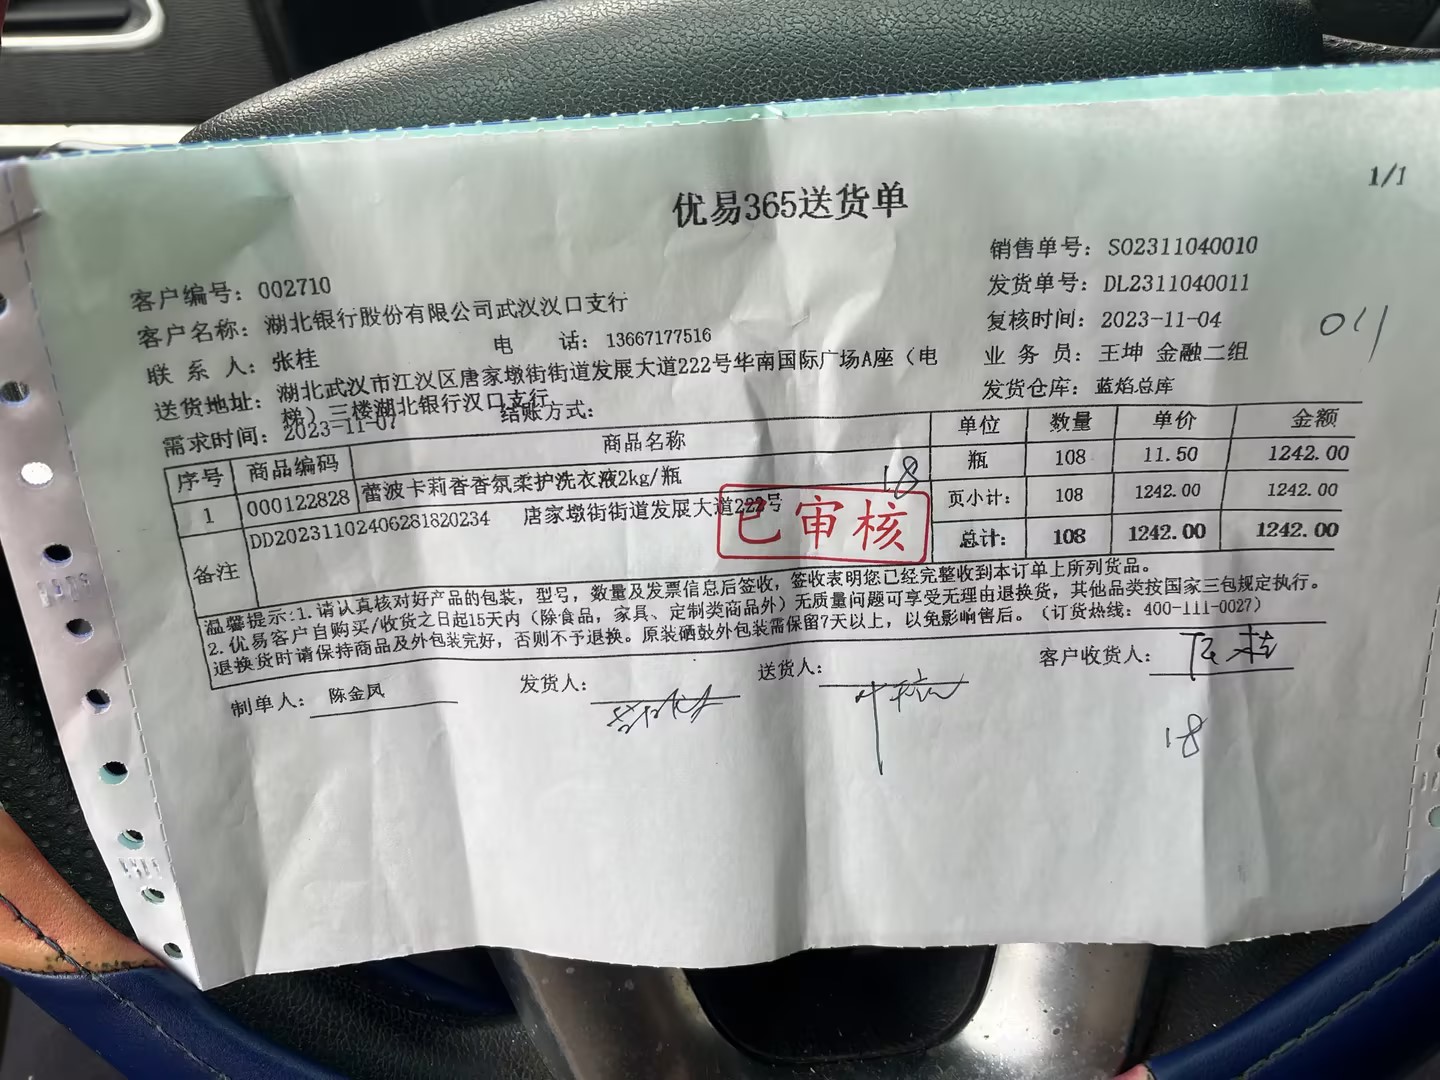 1/1
优易365送货单
客户编号：002710
销售单号：SO2311040010
客户名称：湖北银行股份有限公司武汉汉口支行
发货单号：DL2311040011
联 系 人：张桂
电 话：13667177516
复核时间：2023-11-04
011
送货地址：湖北武汉市江汉区唐家墩街街道发展大道222号华南国际广场A座（电
梯）三楼湖北银行汉口支行
业 务 员：王坤 金融二组
需求时间：2023-11-07
结账方式：
发货仓库：蓝焰总库
序号 商品编码 商品名称 单位 数量 单价 金额
1 000122828 蕾波卡莉香香氛柔护洗衣液2kg/瓶 瓶 108 11.50 1242.00
18
页小计： 108 1242.00 1242.00
总计： 108 1242.00 1242.00
备注 DD20231102406281820234 唐家墩街街道发展大道222号
已审核
温馨提示:1. 请认真核对好产品的包装，型号，数量及发票信息后签收，签收表明您已经完整收到本订单上所列货品。
2. 优易客户自购买/收货之日起15天内（除食品，家具、定制类商品外）无质量问题可享受无理由退换货，其他品类按国家三包规定执行。
退换货时请保持商品及外包装完好，否则不予退换。原装硒鼓外包装需保留7天以上，以免影响售后。（订货热线：400-111-0027）
制单人：陈金凤
发货人：
送货人：
客户收货人：
18